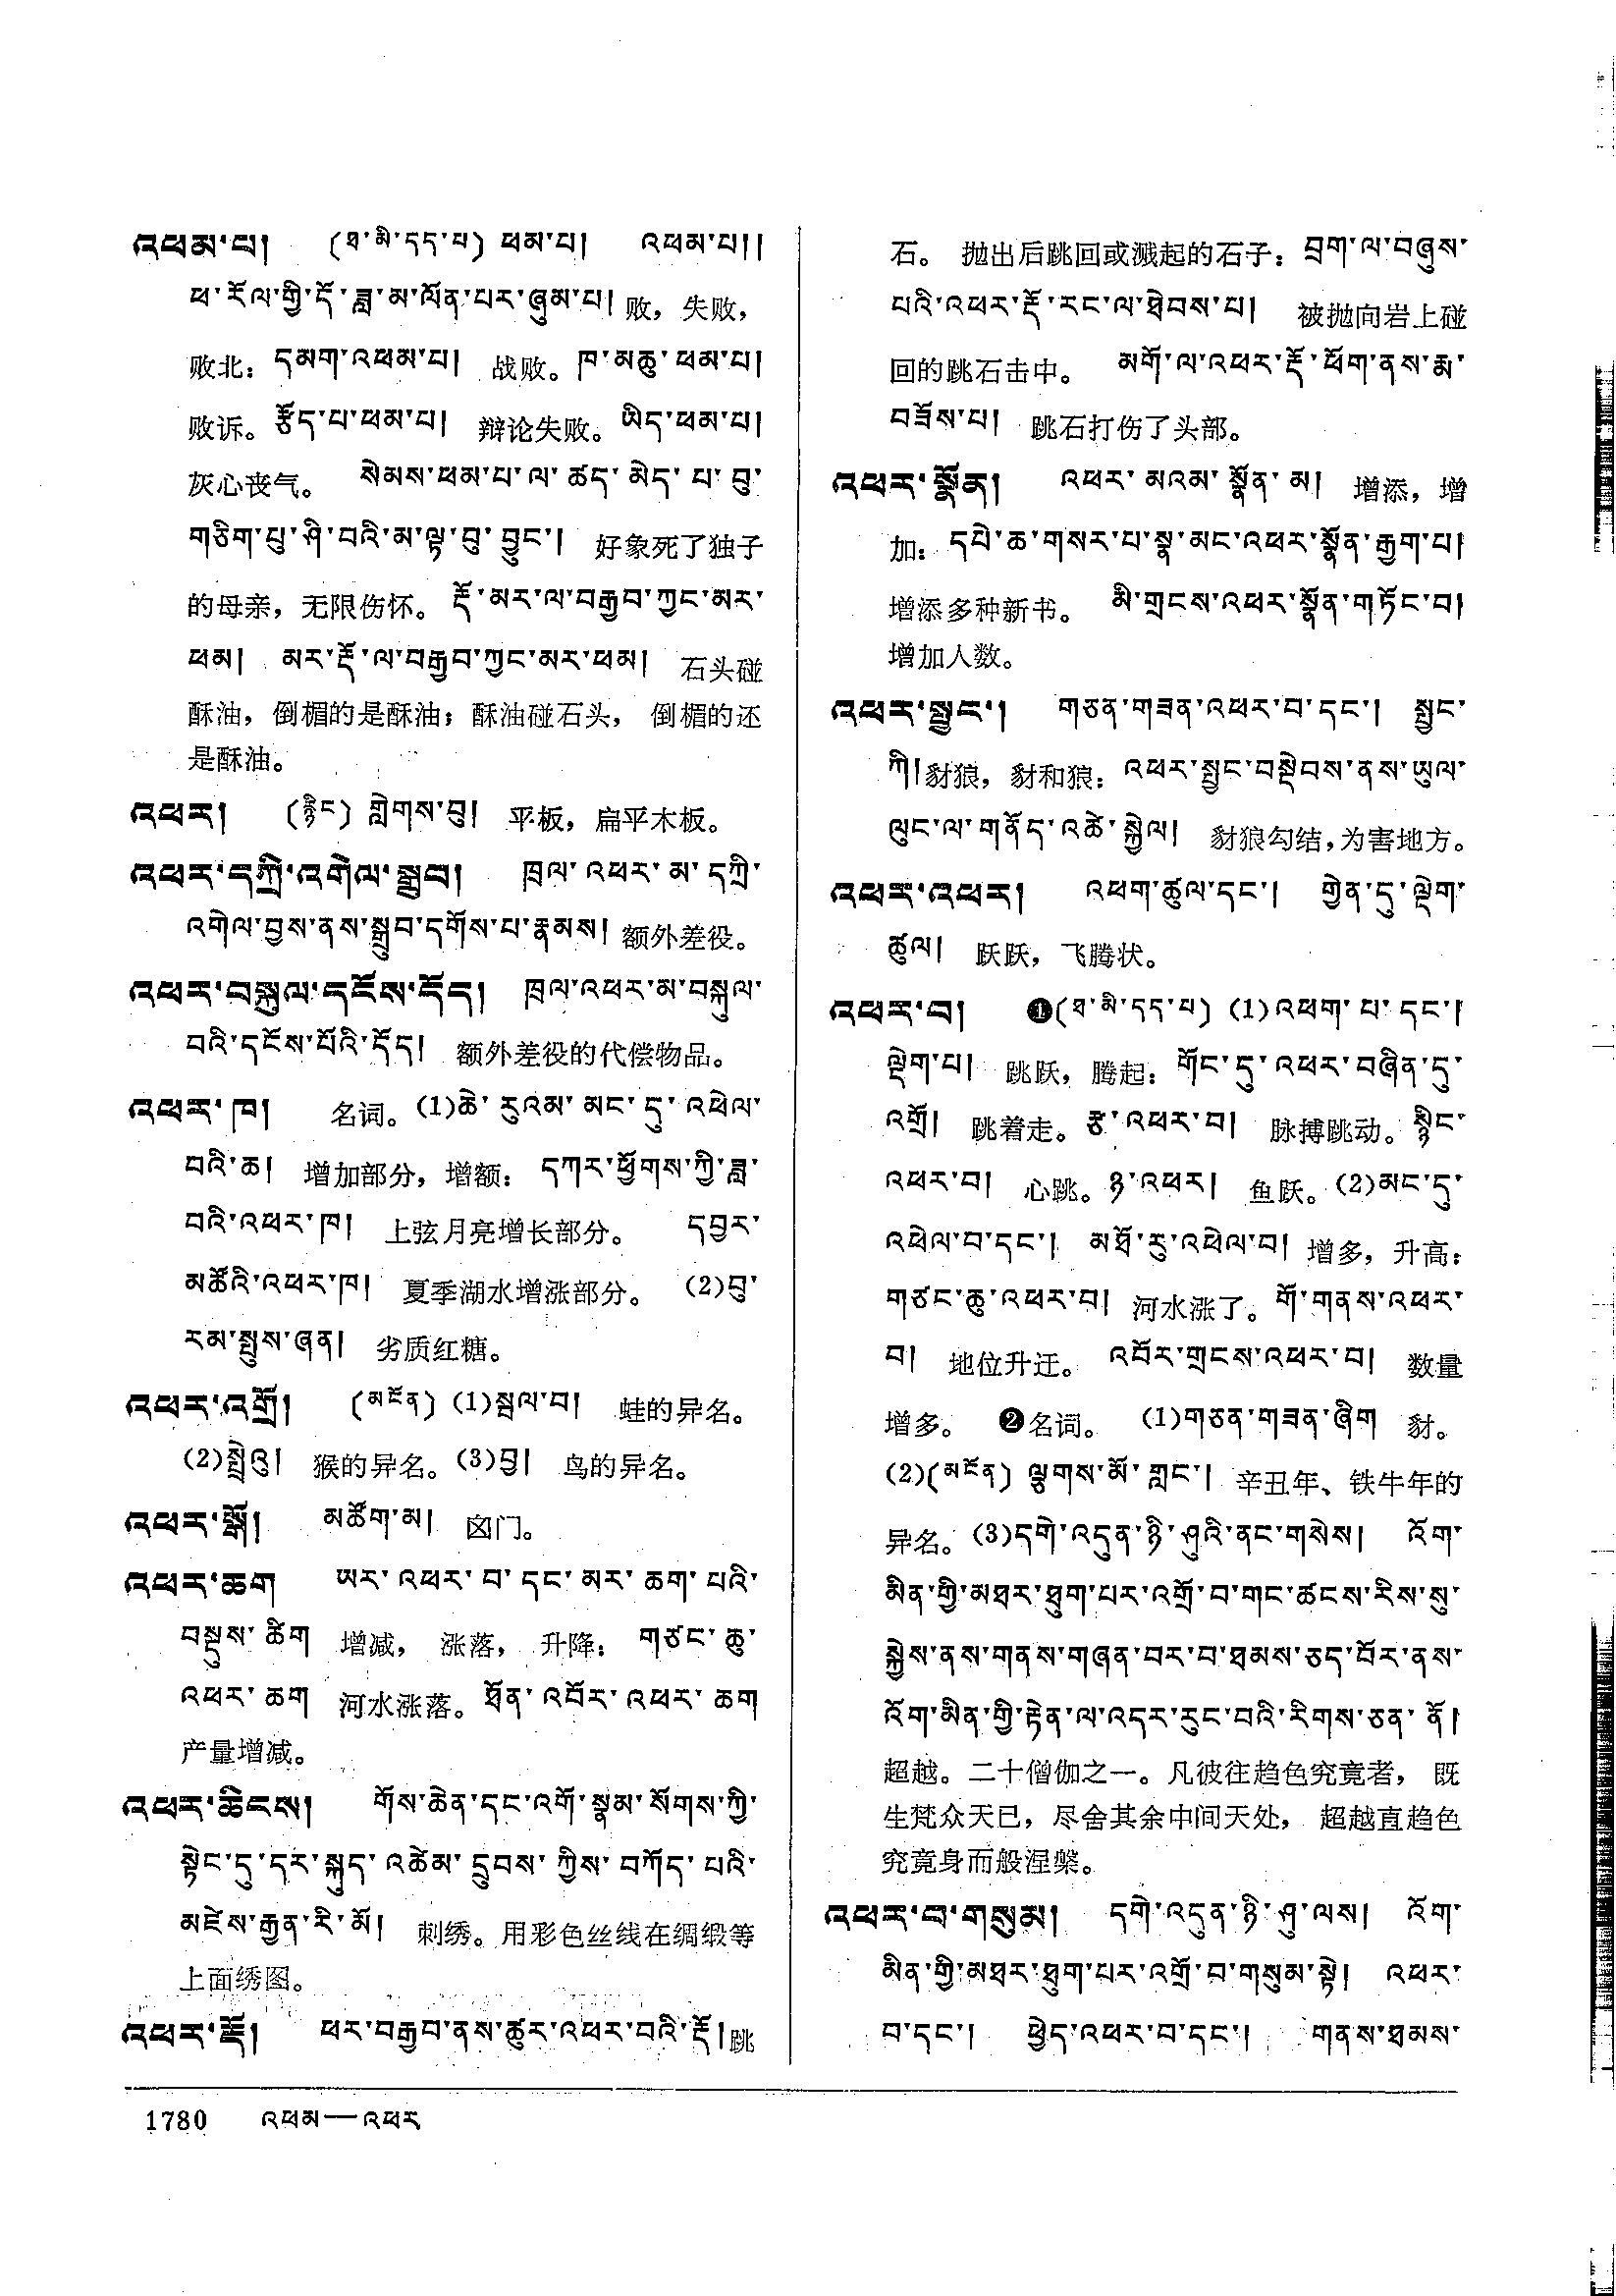 འཕམ་པ། (ཐ་མི་དད་པ) ཕམ་པ། འཕམ་པ།།
ཕ་རོལ་གྱི་དོ་ཟླ་མ་ལོན་པར་ཞུམ་པ། 败，失败，
败北：དམག་འཕམ་པ། 战败。ཁ་མཆུ་ཕམ་པ།
败诉。རྩོད་པ་ཕམ་པ། 辩论失败。ཡིད་ཕམ་པ།
灰心丧气。 སེམས་ཕམ་པ་ལ་ཚད་མེད་པ་བུ་
གཅིག་པུ་ཤི་བའི་མ་ལྟ་བུ་བྱུང་། 好象死了独子
的母亲，无限伤怀。རྡོ་མར་ལ་བརྒྱབ་ཀྱང་མར་
ཕམ། མར་རྡོ་ལ་བརྒྱབ་ཀྱང་མར་ཕམ། 石头碰
酥油，倒楣的是酥油；酥油碰石头， 倒楣的还
是酥油。
འཕར། (རྙིང) གླེགས་བུ། 平板，扁平木板。
འཕར་དཀྲི་འགེལ་སྒྲུབ། ཁྲལ་འཕར་མ་དཀྲི་
འགེལ་བྱས་ནས་སྒྲུབ་དགོས་པ་རྣམས། 额外差役。
འཕར་བསྐུལ་དངོས་དོད། ཁྲལ་འཕར་མ་བསྐུལ་
བའི་དངོས་པོའི་དོད། 额外差役的代偿物品。
འཕར་ཁ། 名词。(1)ཆེ་རུའམ་མང་དུ་འཕེལ་
བའི་ཆ། 增加部分，增额：དཀར་ཕྱོགས་ཀྱི་ཟླ་
བའི་འཕར་ཁ། 上弦月亮增长部分。 དབྱར་
མཚོའི་འཕར་ཁ། 夏季湖水增涨部分。 (2)བུ་
རམ་སྤུས་ཞན། 劣质红糖。
འཕར་འགྲོ། (མངོན) (1)སྦལ་བ། 蛙的异名。
(2)སྤྲེའུ། 猴的异名。(3)བྱ། 鸟的异名。
འཕར་སྒོ། མཚོག་མ། 囟门。
འཕར་ཆག ཡར་འཕར་བ་དང་མར་ཆག་པའི་
བསྡུས་ཚིག 增减， 涨落， 升降：གཙང་ཆུ་
འཕར་ཆག 河水涨落。ཐོན་འབོར་འཕར་ཆག
产量增减。
འཕར་ཆིངས། གོས་ཆེན་དང་འགོ་སྣམ་སོགས་ཀྱི་
སྟེང་དུ་དར་སྐུད་འཚེམ་དྲུབས་ཀྱིས་བཀོད་པའི་
མཛེས་རྒྱན་རི་མོ། 刺绣。用彩色丝线在绸缎等
上面绣图。
འཕར་རྡོ། ཕར་བརྒྱབ་ནས་ཚུར་འཕར་བའི་རྡོ། 跳
石。 抛出后跳回或溅起的石子：བྲག་ལ་བཞུས་
པའི་འཕར་རྡོ་རང་ལ་ཐེབས་པ། 被抛向岩上碰
回的跳石击中。 མགོ་ལ་འཕར་རྡོ་ཕོག་ནས་རྨ་
བཟོས་པ། 跳石打伤了头部。
འཕར་སྣོན། འཕར་མའམ་སྣོན་མ། 增添，增
加：དཔེ་ཆ་གསར་པ་སྣ་མང་འཕར་སྣོན་རྒྱག་པ།
增添多种新书。 མི་གྲངས་འཕར་སྣོན་གཏོང་བ།
增加人数。
འཕར་སྤྱང་། གཅན་གཟན་འཕར་བ་དང་། སྤྱང་
ཀི། 豺狼，豺和狼：འཕར་སྤྱང་བསྡེབས་ནས་ཡུལ་
ལུང་ལ་གནོད་འཚེ་སྐྱེལ། 豺狼勾结，为害地方。
འཕར་འཕར། འཕག་ཚུལ་དང་། གྱེན་དུ་ལྡེག་
ཚུལ། 跃跃，飞腾状。
འཕར་བ། ❶(ཐ་མི་དད་པ) (1)འཕག་པ་དང་།
ལྡེག་པ། 跳跃，腾起：གོང་དུ་འཕར་བཞིན་དུ་
འགྲོ། 跳着走。རྩ་འཕར་བ། 脉搏跳动。སྙིང་
འཕར་བ། 心跳。ཉ་འཕར། 鱼跃。(2)མང་དུ་
འཕེལ་བ་དང་། མཐོ་རུ་འཕེལ་བ། 增多，升高：
གཙང་ཆུ་འཕར་བ། 河水涨了。གོ་གནས་འཕར་
བ། 地位升迁。 འབོར་གྲངས་འཕར་བ། 数量
增多。 ❷名词。 (1)གཅན་གཟན་ཞིག 豺。
(2)(མངོན) ལྕགས་མོ་གླང་། 辛丑年、铁牛年的
异名。(3)དགེ་འདུན་ཉི་ཤུའི་ནང་གསེས། འོག་
མིན་གྱི་མཐར་ཐུག་པར་འགྲོ་བ་གང་ཚངས་རིས་སུ་
སྐྱེས་ནས་གནས་གཞན་བར་བ་ཐམས་ཅད་བོར་ནས་
འོག་མིན་གྱི་རྟེན་ལ་འདར་རུང་བའི་རིགས་ཅན་ནོ།
超越。二十僧伽之一。凡彼往趋色究竟者， 既
生梵众天已，尽舍其余中间天处， 超越直趋色
究竟身而般涅槃。
འཕར་བ་གསུམ། དགེ་འདུན་ཉི་ཤུ་ལས། འོག་
མིན་གྱི་མཐར་ཐུག་པར་འགྲོ་བ་གསུམ་སྟེ། འཕར་
བ་དང་། ཕྱེད་འཕར་བ་དང་། གནས་ཐམས་
1780 འཕམ—འཕར